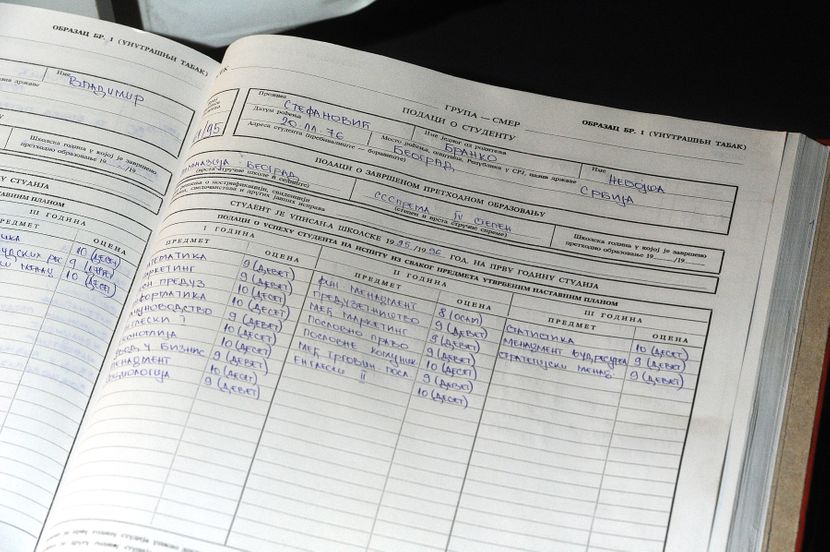 ОБРАЗАЦ БР. 1 (УНУТРАШЊИ ТАБАК)
Име
ВЛАДИМИР
Школска година у којој је завршено
претходно образовање 19___/19___
III ГОДИНА
ОЦЕНА
10 (ДЕСЕТ)
9 (ДЕВЕТ)
10 (ДЕСЕТ)
ГРУПА — СМЕР
ОБРАЗАЦ БР. 1 (УНУТРАШЊИ ТАБАК)
ПОДАЦИ О СТУДЕНТУ
Презиме
СТЕФАНОВИЋ
Име једног од родитеља
БРАНКО
Име
НЕБОЈША
Датум рођења
20.11.76
Место рођења, општина, Република у СРЈ, назив државе
БЕОГРАД
СРБИЈА
Адреса студента (пребивалиште — боравиште)
ПОДАЦИ О ЗАВРШЕНОМ ПРЕТХОДНОМ ОБРАЗОВАЊУ
ГИМНАЗИЈА - БЕОГРАД
(врста стручне школе и седиште)
ССС ПРЕМА IV СТЕПЕН
(степен и врста стручне спреме)
Школска година у којој је завршено
претходно образовање 19___/19___
СТУДЕНТ ЈЕ УПИСАН ШКОЛСКЕ 1995/1996 ГОД. НА ПРВУ ГОДИНУ СТУДИЈА
ПОДАЦИ О УСПЕХУ СТУДЕНТА НА ИСПИТУ ИЗ СВАКОГ ПРЕДМЕТА УТВРЂЕНИМ НАСТАВНИМ ПЛАНОМ
I ГОДИНА
II ГОДИНА
III ГОДИНА
ПРЕДМЕТ ОЦЕНА
ПРЕДМЕТ ОЦЕНА
ПРЕДМЕТ ОЦЕНА
МАТЕМАТИКА 9 (ДЕВЕТ)
МАРКЕТИНГ 9 (ДЕВЕТ)
ПРЕДУЗ 10 (ДЕСЕТ)
ИНФОРМАТИКА 10 (ДЕСЕТ)
РАЧУНОВОДСТВО 9 (ДЕВЕТ)
ЕНГЛЕСКИ I 10 (ДЕСЕТ)
10 (ДЕСЕТ)
УВОД У БИЗНИС 9 (ДЕВЕТ)
МЕНАЏМЕНТ 10 (ДЕСЕТ)
9 (ДЕВЕТ)
ФИН МЕНАЏМЕНТ 8 (ОСАМ)
ПРЕДУЗЕТНИШТВО 9 (ДЕВЕТ)
МЕЂ МАРКЕТИНГ 9 (ДЕВЕТ)
ПОСЛОВНО ПРАВО 9 (ДЕВЕТ)
ПОСЛОВНЕ КОМУНИК. 10 (ДЕСЕТ)
МЕЂ ТРГОВИН. ПОСЛ. 9 (ДЕВЕТ)
ЕНГЛЕСКИ II 10 (ДЕСЕТ)
СТАТИСТИКА 10 (ДЕСЕТ)
МЕНАЏМЕНТ ЉУД РЕСУРСА 9 (ДЕВЕТ)
СТРАТЕГИЈСКИ МЕНАЏ 9 (ДЕВЕТ)